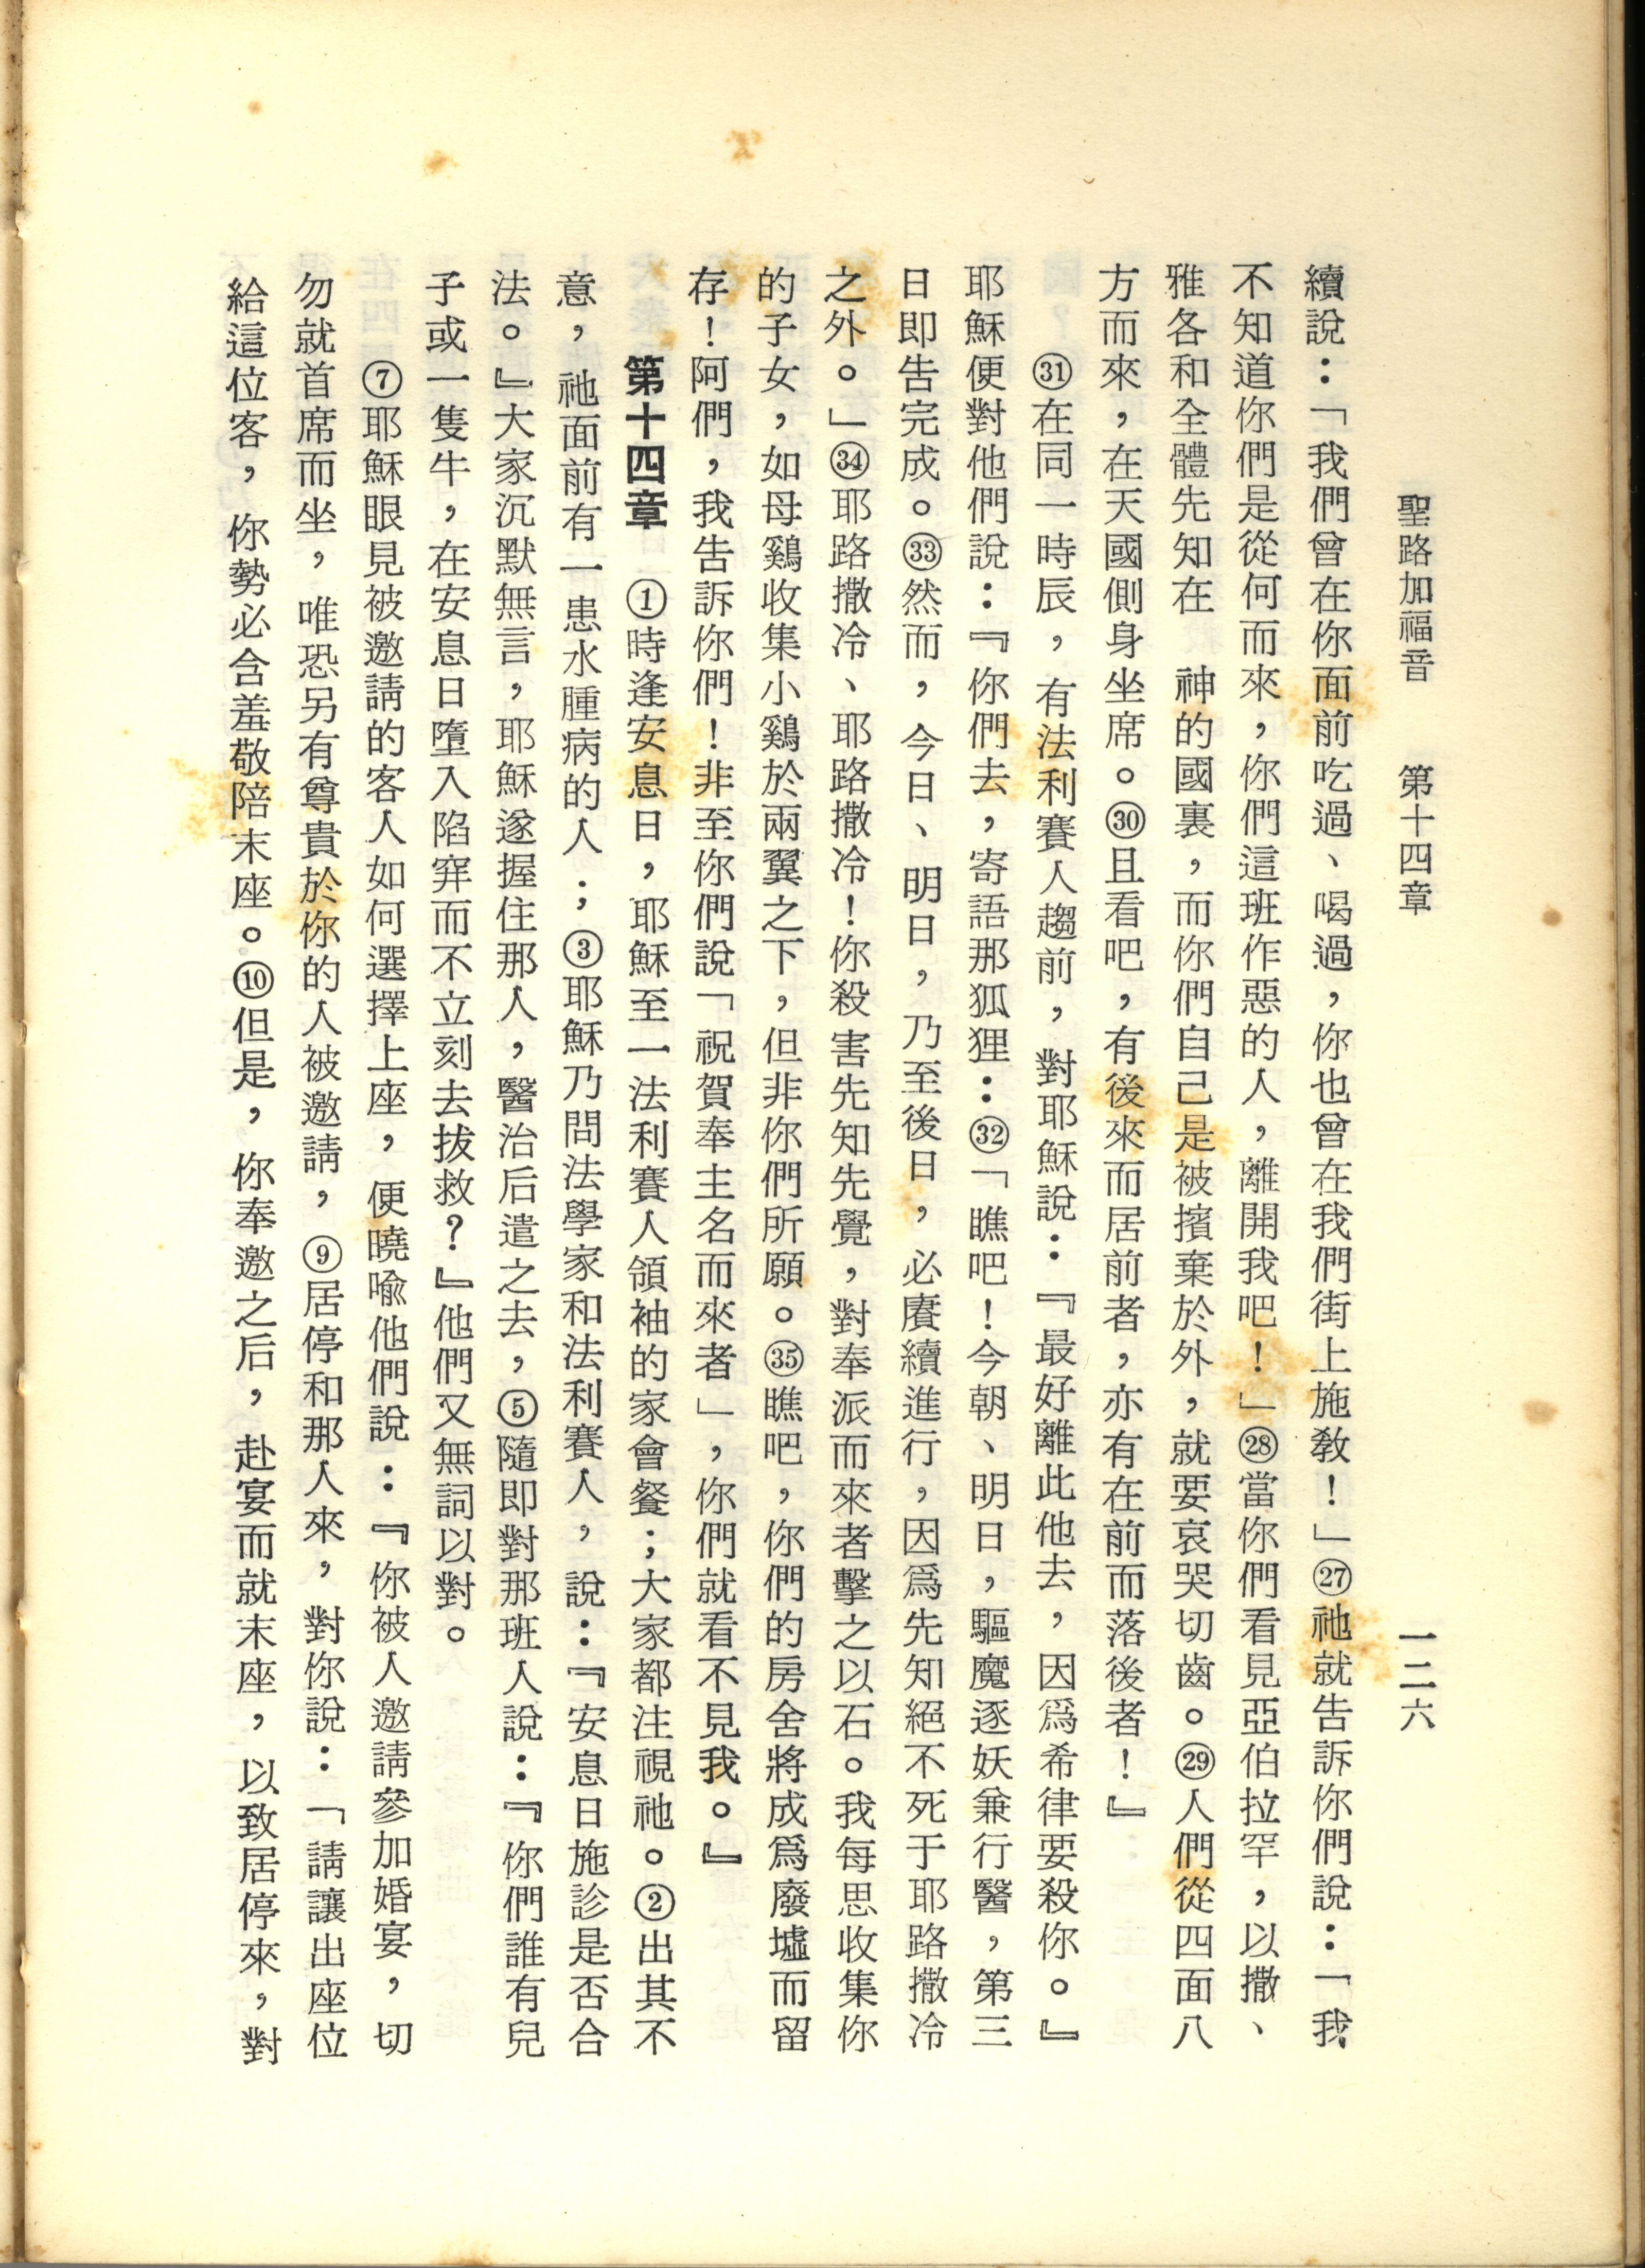 聖路加福音　　第十四章　　一二六
續說：「我們曾在你面前吃過、喝過，你也曾在我們街上施教！」㉗祂就告訴你們說：「我
不知道你們是從何而來，你們這班作惡的人，離開我吧！」㉘當你們看見亞伯拉罕，以撒、
雅各和全體先知在　神的國裏，而你們自己是被擯棄於外，就要哀哭切齒。㉙人們從四面八
方而來，在天國側身坐席。㉚且看吧，有後來而居前者，亦有在前而落後者！』
㉛在同一時辰，有法利賽人趨前，對耶穌說：『最好離此他去，因爲希律要殺你。』
耶穌便對他們說：『你們去，寄語那狐狸：㉜「瞧吧！今朝、明日，驅魔逐妖兼行醫，第三
日即吿完成。㉝然而，今日、明日，乃至後日，必賡續進行，因爲先知絕不死于耶路撒冷
之外。」㉞耶路撒冷、耶路撒冷！你殺害先知先覺，對奉派而來者擊之以石。我每思收集你
的子女，如母鷄收集小鷄於兩翼之下，但非你們所願。㉟瞧吧，你們的房舍將成爲廢墟而留
存！阿們，我告訴你們！非至你們說「祝賀奉主名而來者」，你們就看不見我。』
第十四章　①時逢安息日，耶穌至一法利賽人領袖的家會餐；大家都注視祂。②出其不
意，祂面前有一患水腫病的人；③耶穌乃問法學家和法利賽人，說：『安息日施診是否合
法。』大家沉默無言，耶穌遂握住那人，醫治后遣之去，⑤隨即對那班人說：『你們誰有兒
子或一隻牛，在安息日墮入陷穽而不立刻去拔救？』他們又無詞以對。
⑦耶穌眼見被邀請的客人如何選擇上座，便曉喩他們說：『你被人邀請參加婚宴，切
勿就首席而坐，唯恐另有尊貴於你的人被邀請，⑨居停和那人來，對你說：「請讓出座位
給這位客，你勢必含羞敬陪末座。⑩但是，你奉邀之后，赴宴而就末座，以致居停來，對